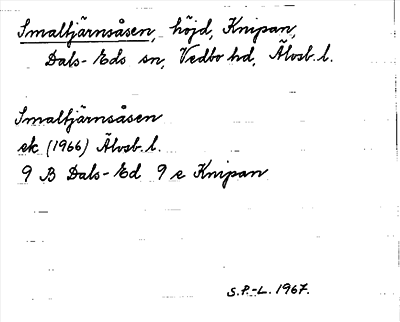 Smaltjärnsåsen, höjd, Knipan,
Dals-Eds sn, Vedbo hd, Älvsb. l.
Smaltjärnsåsen
ek (1966) Älvsb. l.
9 B Dals-Ed 9 e Knipan
S.P.-L. 1967.